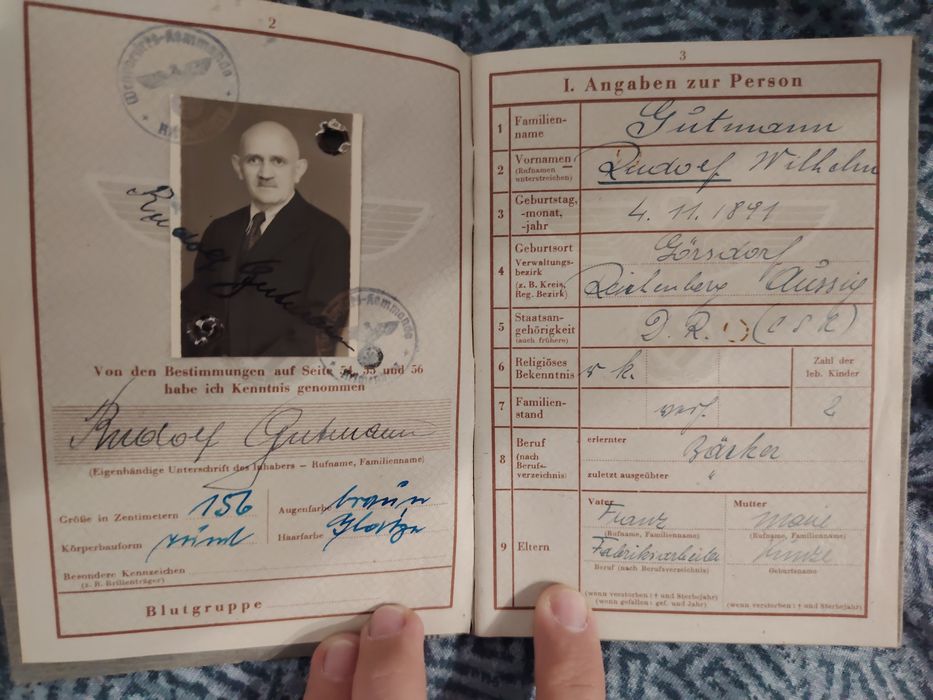 2
Wehrbezirks-Kommando
Rudolf Gutmann
Von den Bestimmungen auf Seite 54, 55 und 56
habe ich Kenntnis genommen
Rudolf Gutmann
(Eigenhändige Unterschrift des Inhabers – Rufname, Familienname)
Größe in Zentimetern 156
Augenfarbe braun
Körperbauform rund
Haarfarbe Glatze
Besondere Kennzeichen
(z. B. Brillenträger)
Blutgruppe
3
I. Angaben zur Person
1 Familien-
name
Gutmann
2 Vornamen
(Rufnamen
unterstreichen)
Rudolf Wilhelm
3 Geburtstag,
-monat,
-jahr
4. 11. 1891
4 Geburtsort
Verwaltungs-
bezirk
(z. B. Kreis,
Reg. Bezirk)
Görsdorf
Reichenberg Aussig
5 Staatsan-
gehörigkeit
(auch frühere)
D. R. (C S R)
6 Religiöses
Bekenntnis
r k.
Zahl der
leb. Kinder
7 Familien-
stand
verh.
2
8 Beruf
(nach
Berufs-
verzeichnis)
erlernter
Bäcker
zuletzt ausgeübter "
9 Eltern
Vater
Franz
(Rufname, Familienname)
Fabriksarbeiter
Beruf (nach Berufsverzeichnis)
(wenn verstorben: † und Sterbejahr)
(wenn gefallen: gef. und Jahr)
Mutter
Marie
(Rufname, Familienname)
Kunze
Geburtsname
(wenn verstorben: † und Sterbejahr)